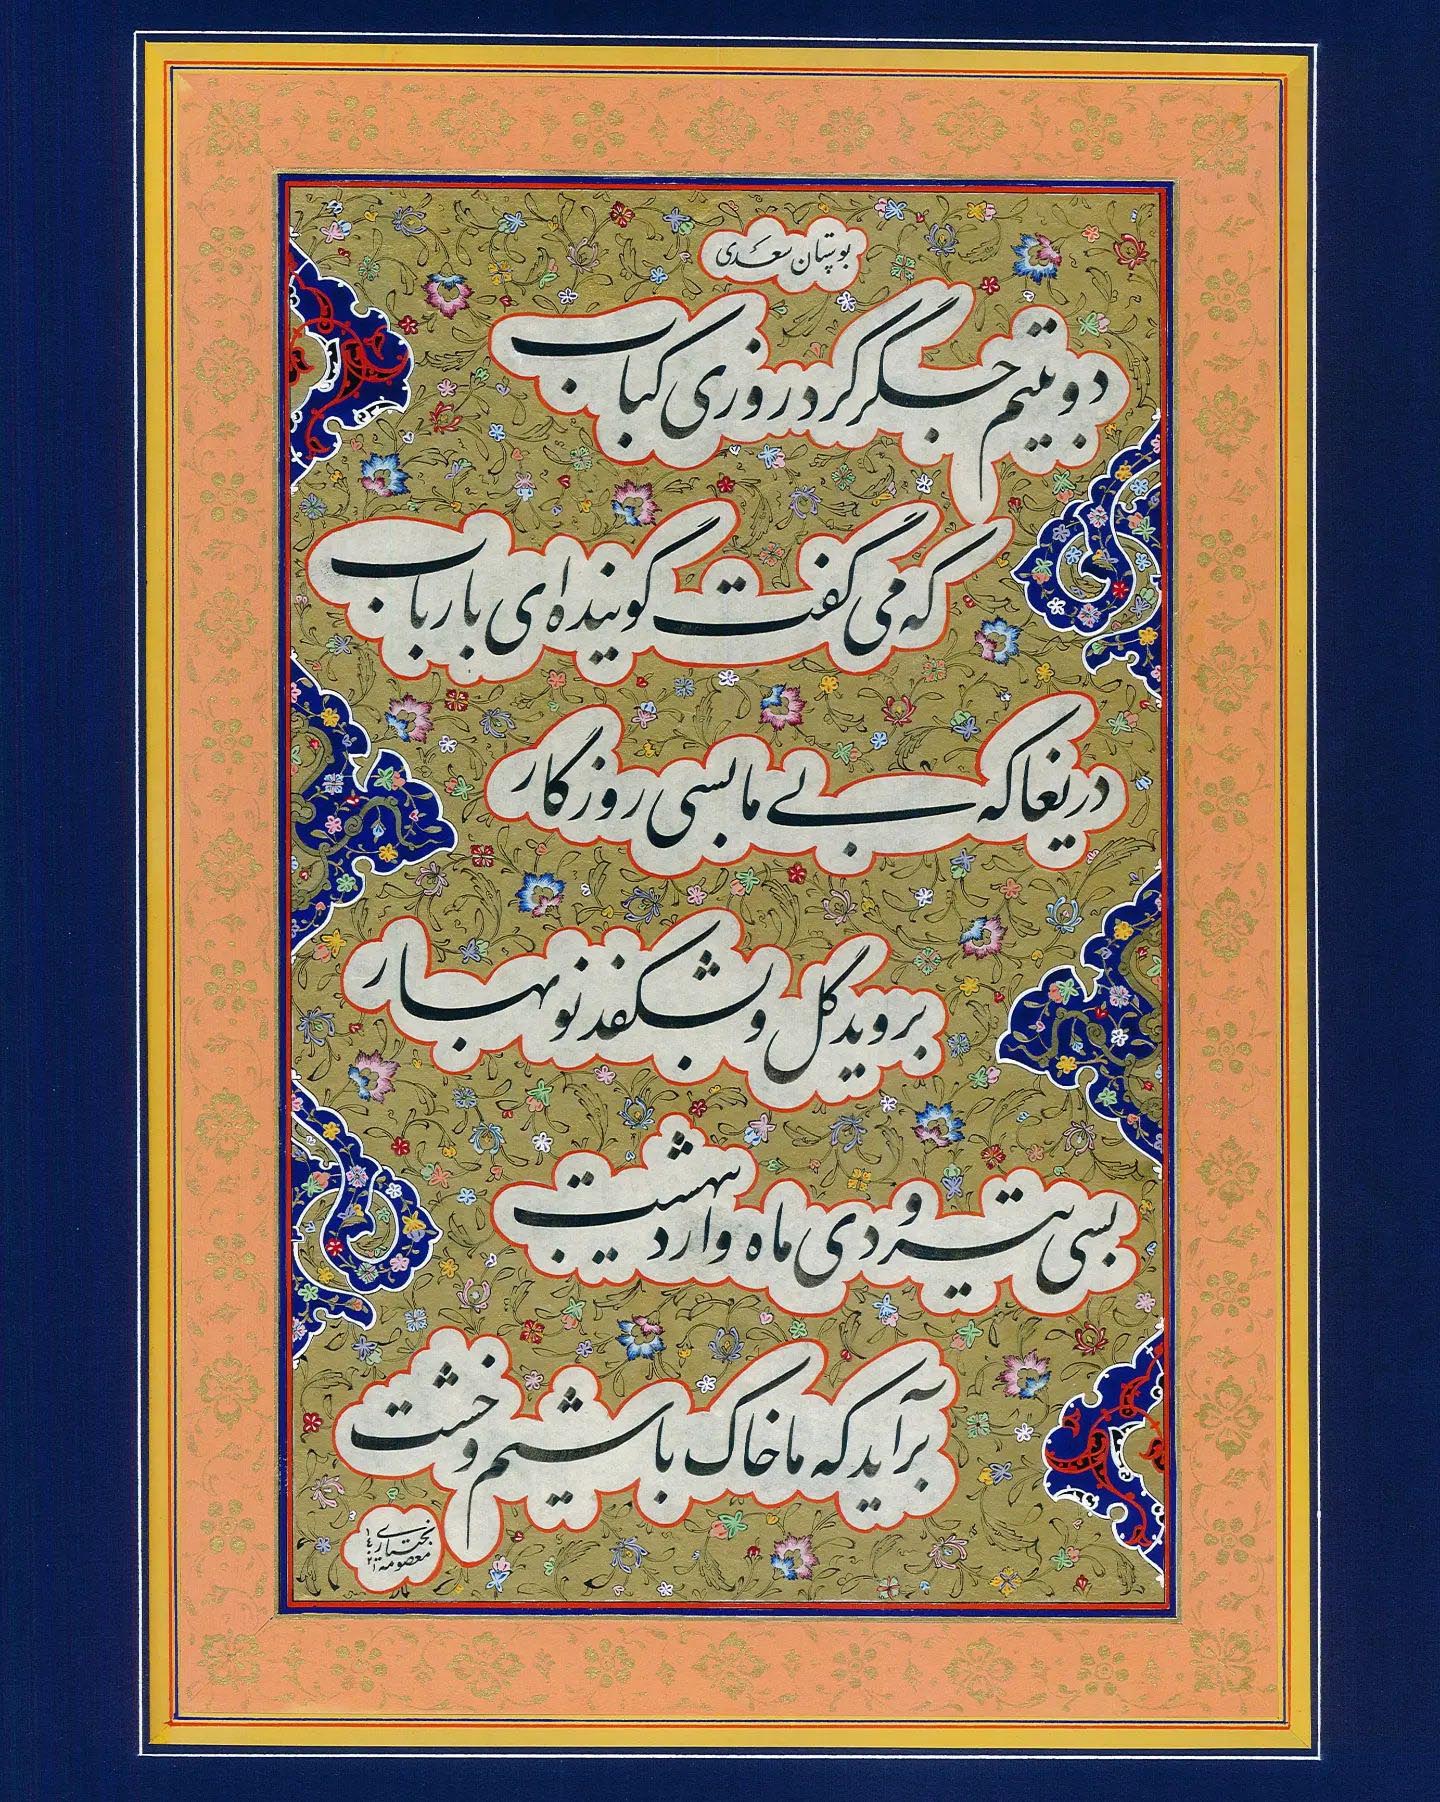 بوستان سعدی
دو بیتم جگر کرد روزی کباب
که می گفت گوینده ای با رباب
دریغا که بی ما بسی روزگار
بروید گل و بشکفد نوبهار
بسی تیر و دی ماه و اردیبهشت
برآید که ما خاک باشیم و خشت
معصومه بختیاری
۱۴۰۲